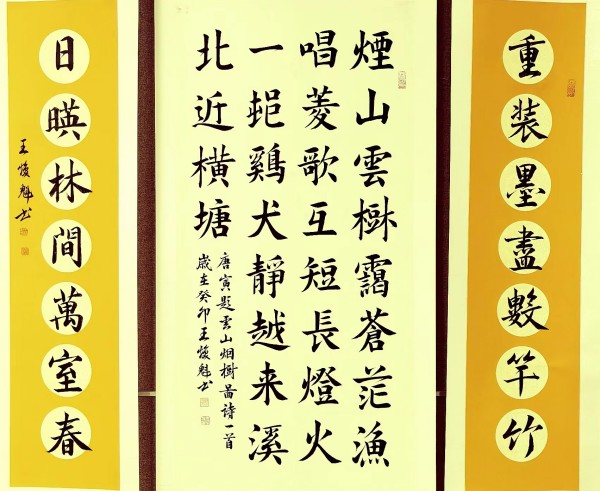 重装墨盡數竿竹
煙山雲樹靄蒼茫漁
唱菱歌互短長燈火
一邨鷄犬靜越来溪
北近横塘
唐寅题雲山烟樹畐诗一首
歲在癸卯王焌魁书
日暎林間萬室春
王焌魁书